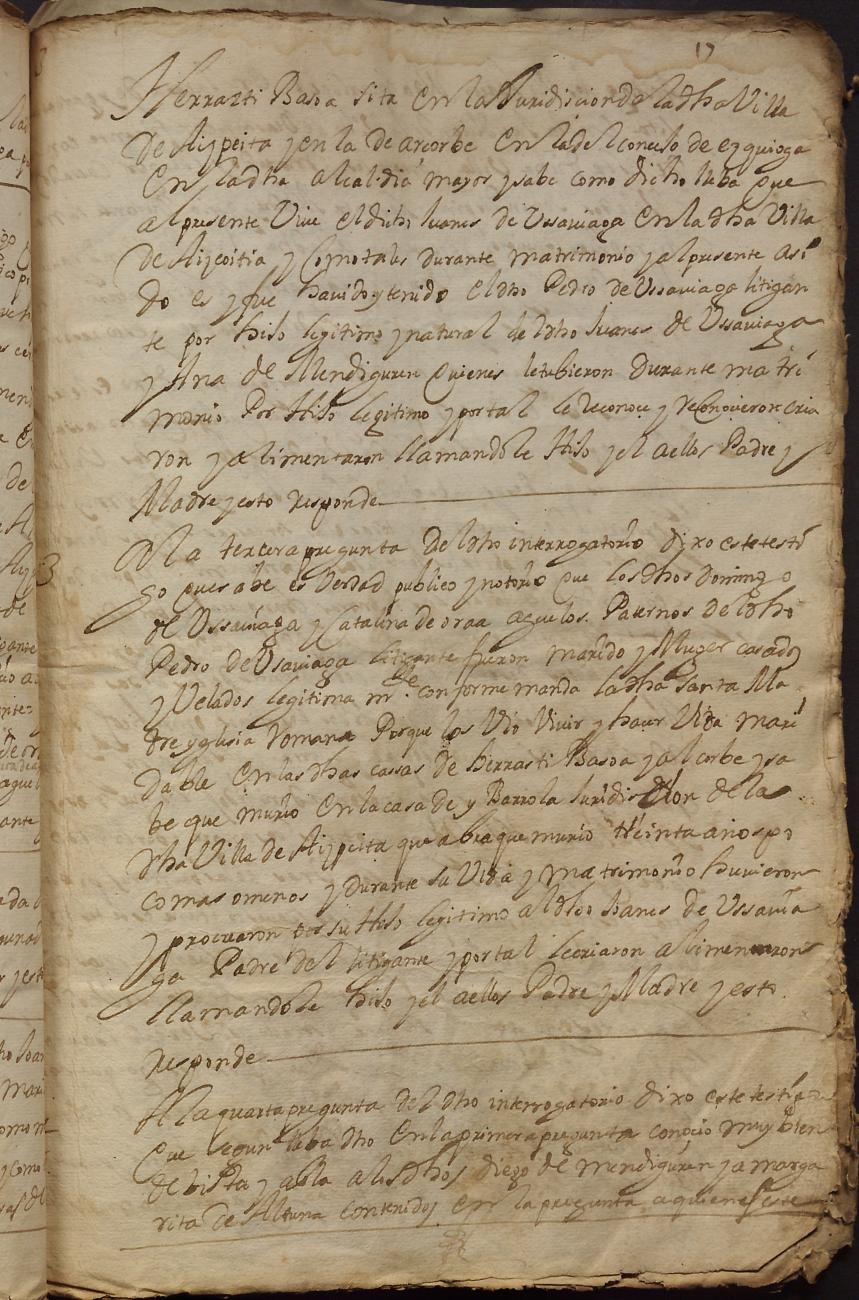 17
Herrazti Basoa sita en la Juridicion de la dha Villa
de Azpeitia y en la de arcorbe en la del conceso de ezquioga
en la dha alcaldia mayor y sabe como dicho lleba que
al presente Vive el dicho Juanes de Ussaviaga en la dha Villa
de Azcoitia y Como tales durante matrimonio y al presente así
do es y fue havido y tenido el dho Pedro de Ussaviaga litigan
te por hijo legitimo y natural de dho Juanes de Ussaviaga
y Ana de Mendiguren quienes le tubieron durante matri
monio Por Hijo legitimo y por tal le Reconoce y Reconovieron cria
ron y alimentaron llamandole Hijo y el a ellos Padre y
Madre y esto responde
3
A la tercera pregunta del dho interrogatorio dixo este testi
go que sabe es Verdad publico y notorio que los dhos doming o
de Ussaviaga y Catalina de oraa aguelos Paternos del dho
Pedro de Usaviaga litigante fueron marido y Muger casados
y Velados legitima mte conforme manda la dha Santa Ma
dre yglesia romana Porque los Vio Vivir y hacer Vida mari
dable en las dhas cassas de herrasti Basoa y alcorbe y sa
be que murio en la casa de y Barrola Juridiscion de la
dha Villa de Azpeitia que abra que murio treinta años po
co mas o menos y durante su Vida y matrimonio huvieron
y procuraron por su Hijo legitimo al dho Joanes de Ussavia
ga Padre del litigante y por tal le criaron alimentaron
llamandole hijo y el a ellos Padre y Madre y esto
responde
A la quarta pregunta del dho interrogatorio dixo este testigo
que segun lleba dho en la primera pregunta conocio muy bien
de bista y abla a los dhos diego de mendiguren y a marga
rita de Altuna contenidos en la pregunta a quienes este